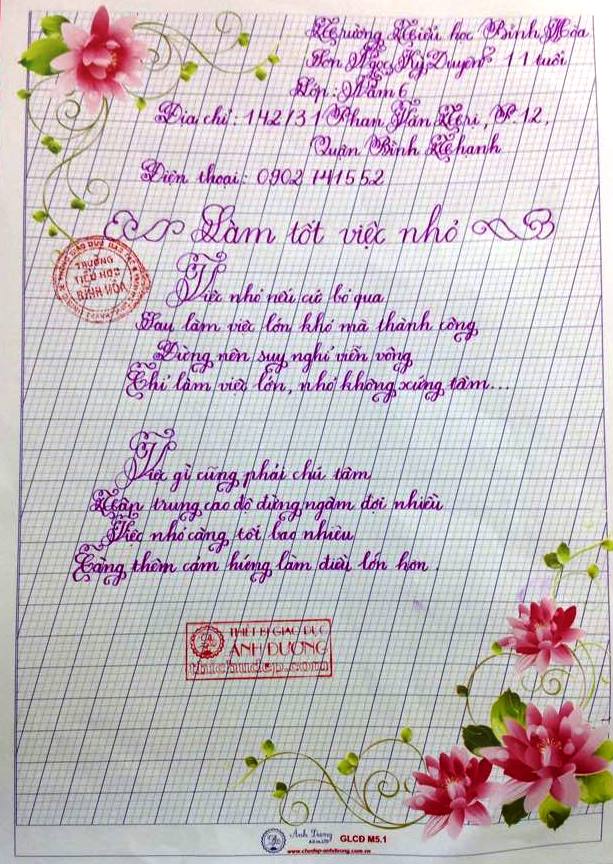 Trường Tiểu học Bình Hòa
Tôn Ngọc Kỳ Duyên 11 tuổi
Lớp: Năm 6
Địa chỉ: 142/31 Phan Văn Trị, P.12,
Quận Bình Thạnh
Điện thoại: 0902 141552
Làm tốt việc nhỏ
TRƯỜNG
TIỂU HỌC
BÌNH HÒA
Việc nhỏ nếu cứ bỏ qua
Sau làm việc lớn khó mà thành công
Đừng nên suy nghĩ viển vông
Chỉ làm việc lớn, nhỏ không xứng tầm...
Việc gì cũng phải chú tâm
Tập trung cao độ đừng ngầm đợi nhiều
Việc nhỏ càng tốt bao nhiêu
Càng thêm cảm hứng làm điều lớn hơn.
THIẾT BỊ GIÁO DỤC
ÁNH DƯƠNG
thichudep.com
Ánh Dương
GLCĐ M5.1
www.chudep-anhduong.com.vn